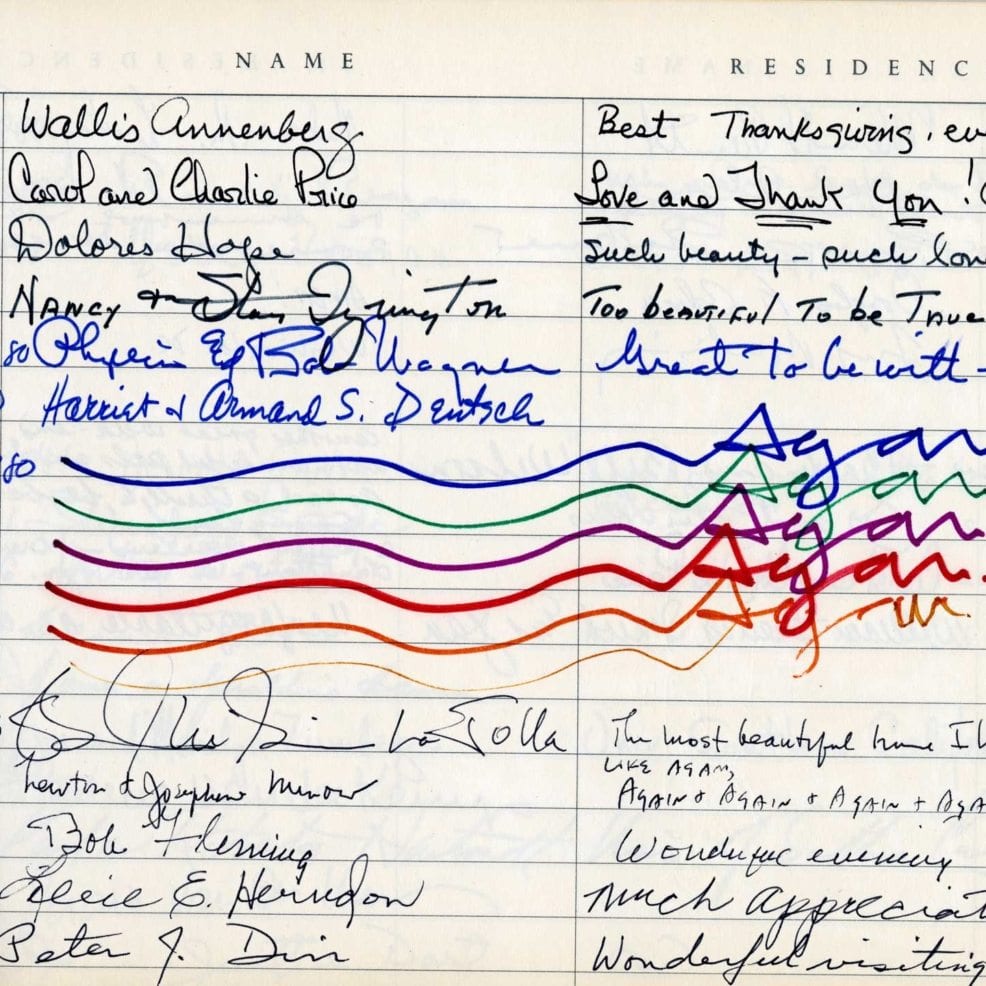 NAME RESIDENC
Wallis Annenberg Best Thanksgiving, ev
Carol and Charlie Price Love and Thank You!
Dolores Hope Such beauty – such lov
NANCY + Too beautiful To be True
80 Bob Wagner Great To be with –
Harriet & Armand S. Deutsch
80 Again
Again
Again
Again.
Again.
La Jolla The most beautiful home I h
LIKE AGAIN,
Newton & Josephine Minow AGAIN & AGAIN & AGAIN + AGA
Bob Fleming Wonderful evening
E. Herndon Much appreciat
Peter J. Wonderful visiting